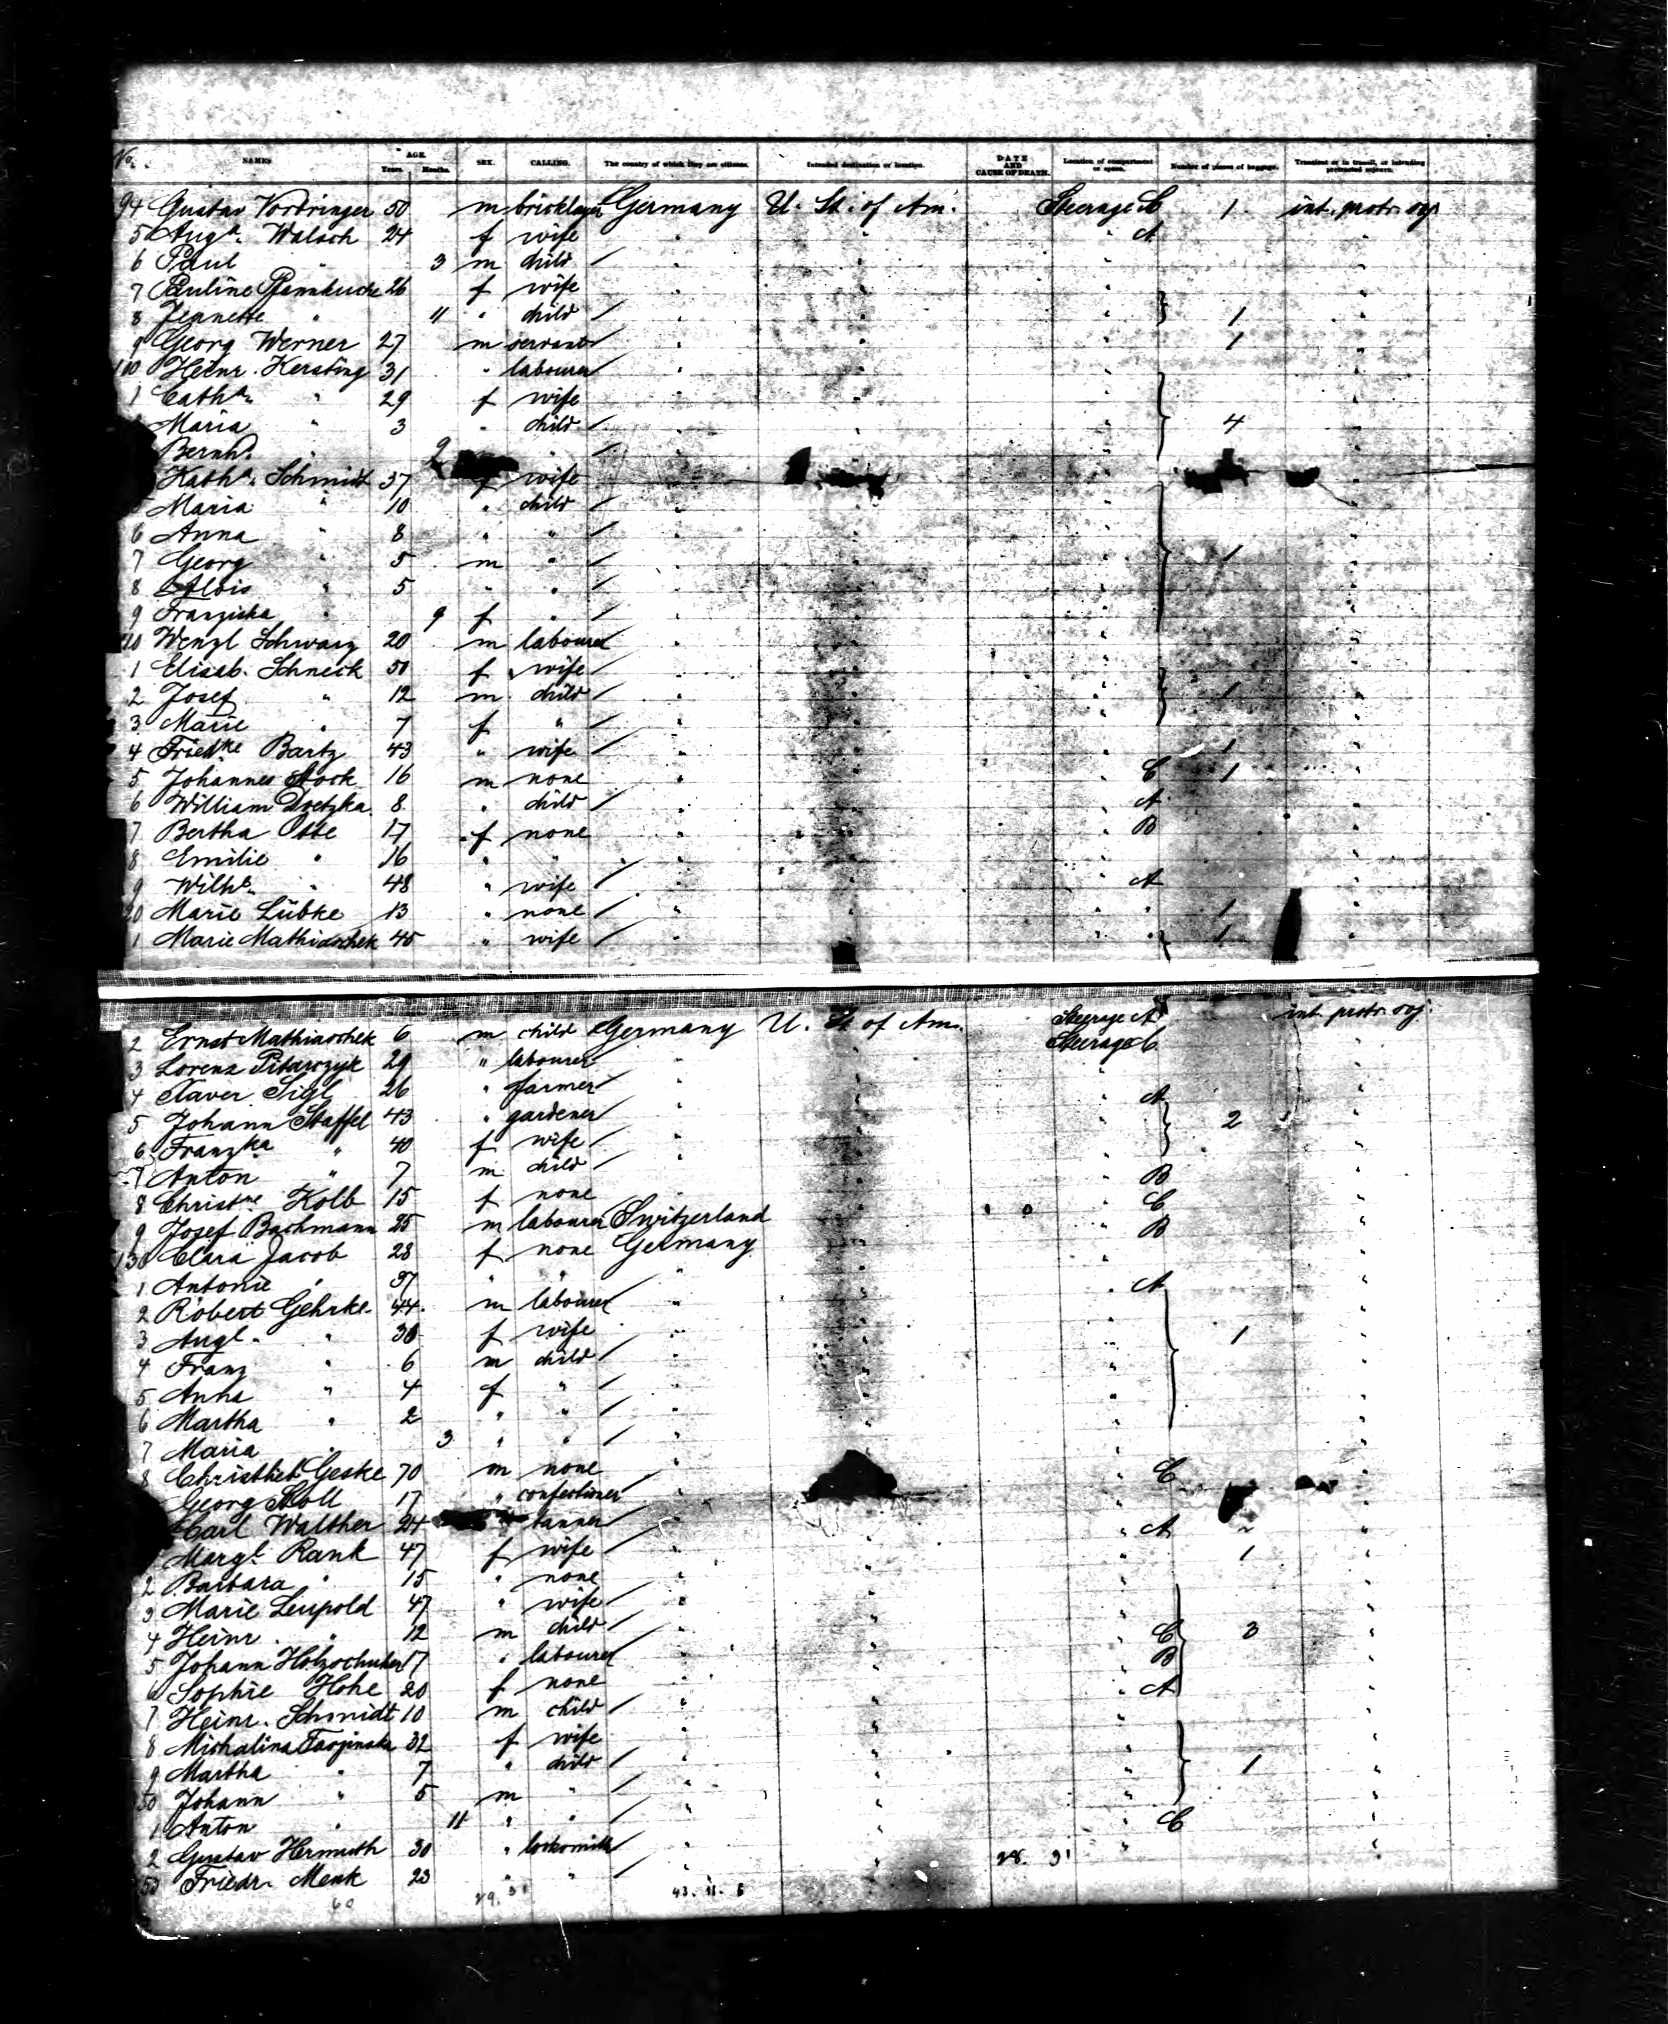 No. NAMES AGE. Years. Months. SEX. CALLING. The country of which they are citizens. Intended destination or location. DATE AND CAUSE OF DEATH. Location of compartment or space. Number of pieces of baggage. Transient or in transit, or intending protracted sojourn.
94 Gustav Vordringer 50 m bricklayer Germany U. St. of Am. Steerage C 1 int. protr. soj.
5 Augte. Walsch 24 f wife " " " A "
6 Paul " 3 m child / " " " "
7 Pauline Pfannkuche 26 f wife " " " "
8 Jeanette " 11 " child / " " " 1 "
9 Georg Werner 27 m servant " " " 1 "
100 Heinr. Kersting 31 " labourer " " " "
1 Catha. " 29 f wife " " " "
Maria " 3 " child / " " " 4 "
Bernhd. " 9 " / " " " "
Katha. Schmidt 37 f wife " " " "
Maria " 10 " child / " " " "
6 Anna " 8 " " / " " " "
7 Georg " 5 m " / " " " 1 "
8 Alois " 5 " " / " " " "
9 Franziska " 9 f " / " " " "
110 Wenzl Schwarz 20 m labourer " " " "
1 Elisab. Schneck 50 f wife / " " " "
2 Josef " 12 m child / " " " 1 "
3 Marie " 7 f " / " " " "
4 Friedke Bartz 43 " wife / " " " 1 "
5 Johannes Stock 16 m none " " " C 1 "
6 William Doetzka 8 " child / " " " A "
7 Bertha Otte 17 f none " " " B "
8 Emilie " 16 " " / " " " "
9 Wilhe. " 48 " wife / " " " A "
20 Marie Lübke 13 " none / " " " " 1 "
1 Marie Mathiaschek 45 " wife / " " " " 1 "
2 Ernst Mathiaschek 6 m child Germany U. St. of Am. Steerage A int. protr. soj.
3 Lorenz Pitarczyk 29 " labourer " " Steerage C "
4 Xaver Sigl 26 " farmer / " " " "
5 Johann Staffel 43 " gardener / " " " A 2 "
6 Franzka " 40 f wife / " " " "
7 Anton " 7 m child / " " " "
8 Christne Kolb 15 f none " " " B "
9 Josef Bachmann 25 m labourer Switzerland " " C "
130 Clara Jacob 28 f none Germany " " B "
1 Antonie " 37 " " / " " " "
2 Robert Gehrke 44 m labourer " " " A "
3 Augte. " 36 f wife / " " " 1 "
4 Franz " 6 m child / " " " "
5 Anna " 4 f " / " " " "
6 Martha " 2 " " / " " " "
7 Maria " 3 " " / " " " "
8 Christlieb Geske 70 m none " " " C "
Georg Stoll 17 " confectioner " " " "
Carl Walther 24 " tanner / " " " A "
Margt. Rank 47 f wife / " " " 1 "
2 Barbara " 15 " none " " " "
3 Marie Leupold 47 " wife / " " " "
4 Heinr. " 12 m child / " " " C 3 "
5 Johann Holzschuher 17 " labourer " " " B "
6 Sophie Hohe 20 f none " " " A "
7 Heinr. Schmidt 10 m child / " " " "
8 Michalina 32 f wife " " " "
9 Martha " 7 " child / " " " 1 "
50 Johann " 5 m " / " " " "
1 Anton " 11 " " / " " " "
2 Gustav Hermuth 30 " locksmith " " " C "
153 Friedr. Menk 23 " " / " " " "
60